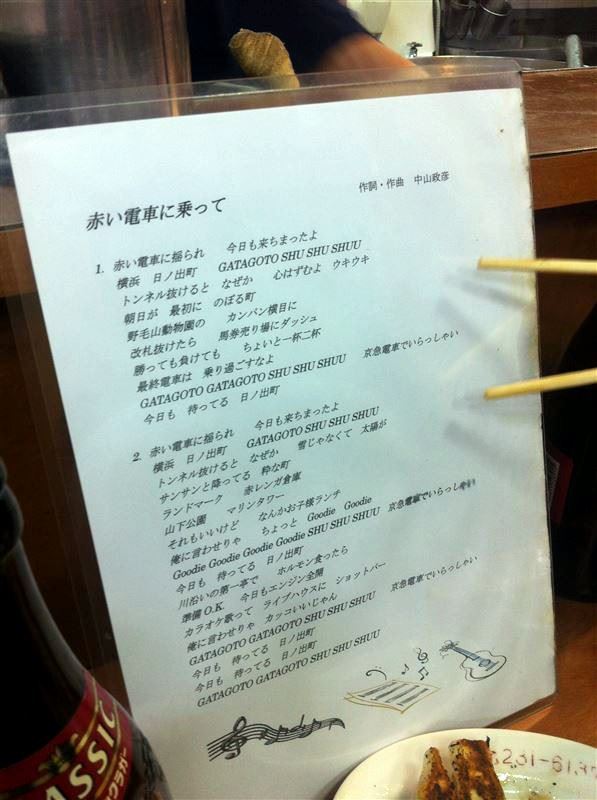 赤い電車に乗って
作詞・作曲 中山政彦
1. 赤い電車に揺られ 今日も来ちまったよ
横浜 日ノ出町 GATAGOTO SHU SHU SHUU
トンネル抜けると なぜか 心はずむよ ウキウキ
朝日が 最初に のぼる町
野毛山動物園の カンバン横目に
改札抜けたら 馬券売り場にダッシュ
勝っても負けても ちょいと一杯二杯
最終電車は 乗り過ごすなよ
GATAGOTO GATAGOTO SHU SHU SHUU 京急電車でいらっしゃい
今日も 待ってる 日ノ出町
2. 赤い電車に揺られ 今日も来ちまったよ
横浜 日ノ出町 GATAGOTO SHU SHU SHUU
トンネル抜けると なぜか 雪じゃなくて 太陽が
サンサンと降ってる 粋な町
ランドマーク 赤レンガ倉庫
山下公園 マリンタワー
それもいいけど なんかお子様ランチ
俺に言わせりゃ ちょっと Goodie Goodie
Goodie Goodie Goodie Goodie SHU SHU SHUU 京急電車でいらっしゃい
今日も 待ってる 日ノ出町
川沿いの第一亭で ホルモン食ったら
準備 O.K. 今日もエンジン全開
カラオケ歌って ライブハウスに ショットバー
俺に言わせりゃ カッコいいじゃん
GATAGOTO GATAGOTO SHU SHU SHUU 京急電車でいらっしゃい
今日も 待ってる 日ノ出町
今日も 待ってる 日ノ出町
GATAGOTO GATAGOTO SHU SHU SHUU
ASSIC
231-61